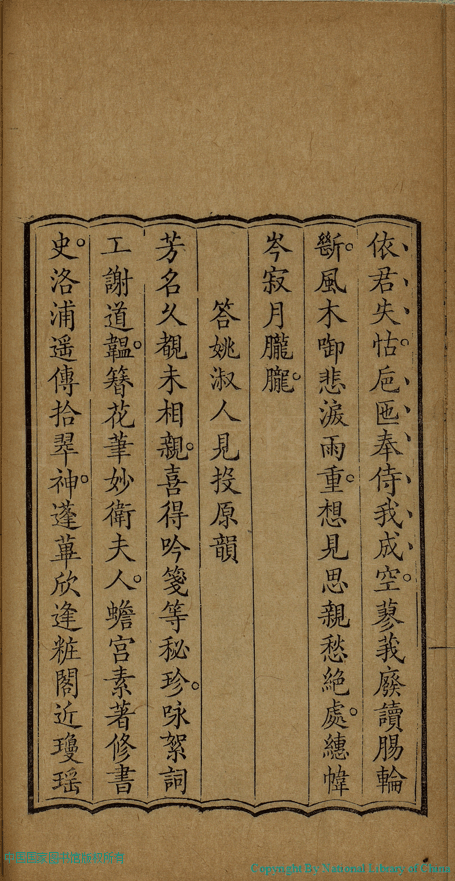 依君失怙。巵匜奉侍我成空。蓼莪廢讀腸輪
斷。風木啣悲淚雨重。想見思親愁絕處。繐幃
岑寂月朧朧。
答姚淑人見投原韻
芳名久覩未相親。喜得吟箋等秘珍。咏絮詞
工謝道韞。簪花筆妙衛夫人。蟾宮素著修書
史。洛浦遥傳拾翠神。蓬蓽欣逢粧閣近瓊瑶
中國国家图书馆
Copyright By National Library of China